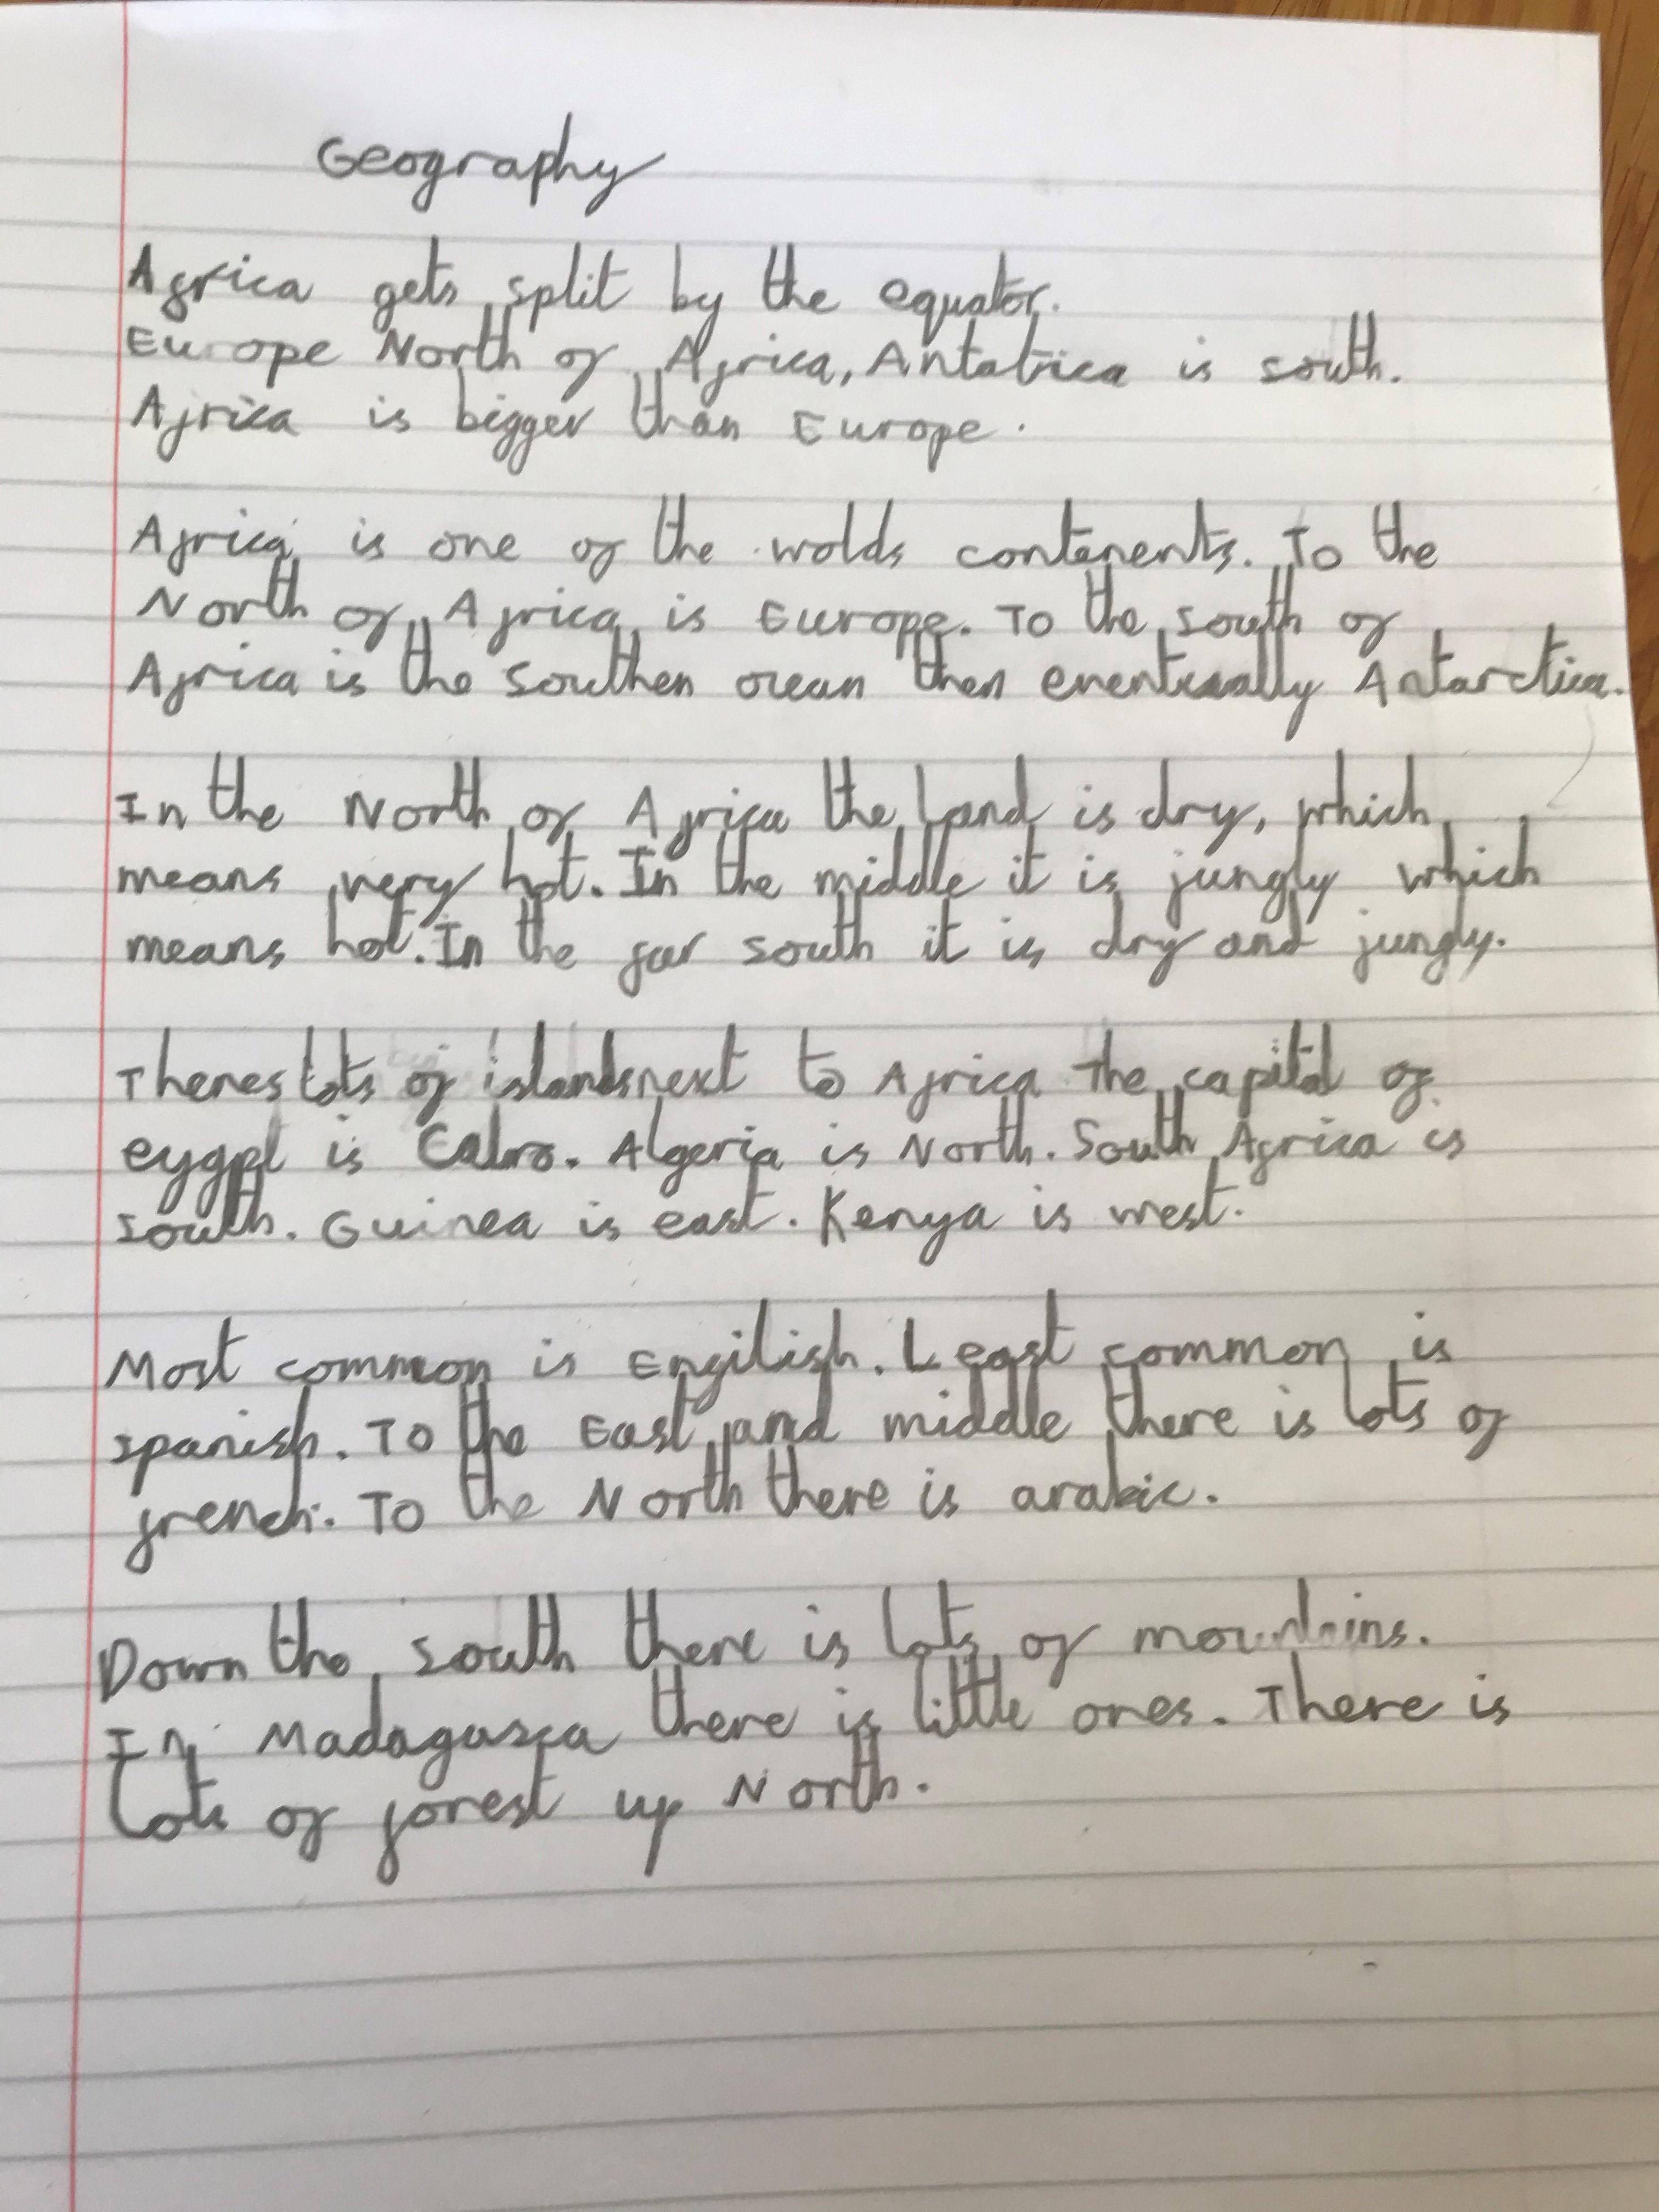 Geography
Africa gets split by the equator.
Europe North of Africa, Antatrica is south.
Africa is bigger than Europe.
Africa is one of the wolds contenents. To the
North of Africa is Europe. To the south of
Africa is the Southen ocean then eventually Antarctica.
In the North of Africa the land is dry, which
means very hot. In the middle it is jungly which
means hot. In the far south it is dry and jungly.
Theres lots of islands next to Africa the capital of
eygpt is Cairo. Algeria is North. South Africa is
south. Guinea is east. Kenya is west.
Most common is Engilish. Least common is
spanish. To the East and middle there is lots of
french. To the North there is arabic.
Down the south there is lots of mountains.
In Madagasca there is little ones. There is
Lots of forest up North.